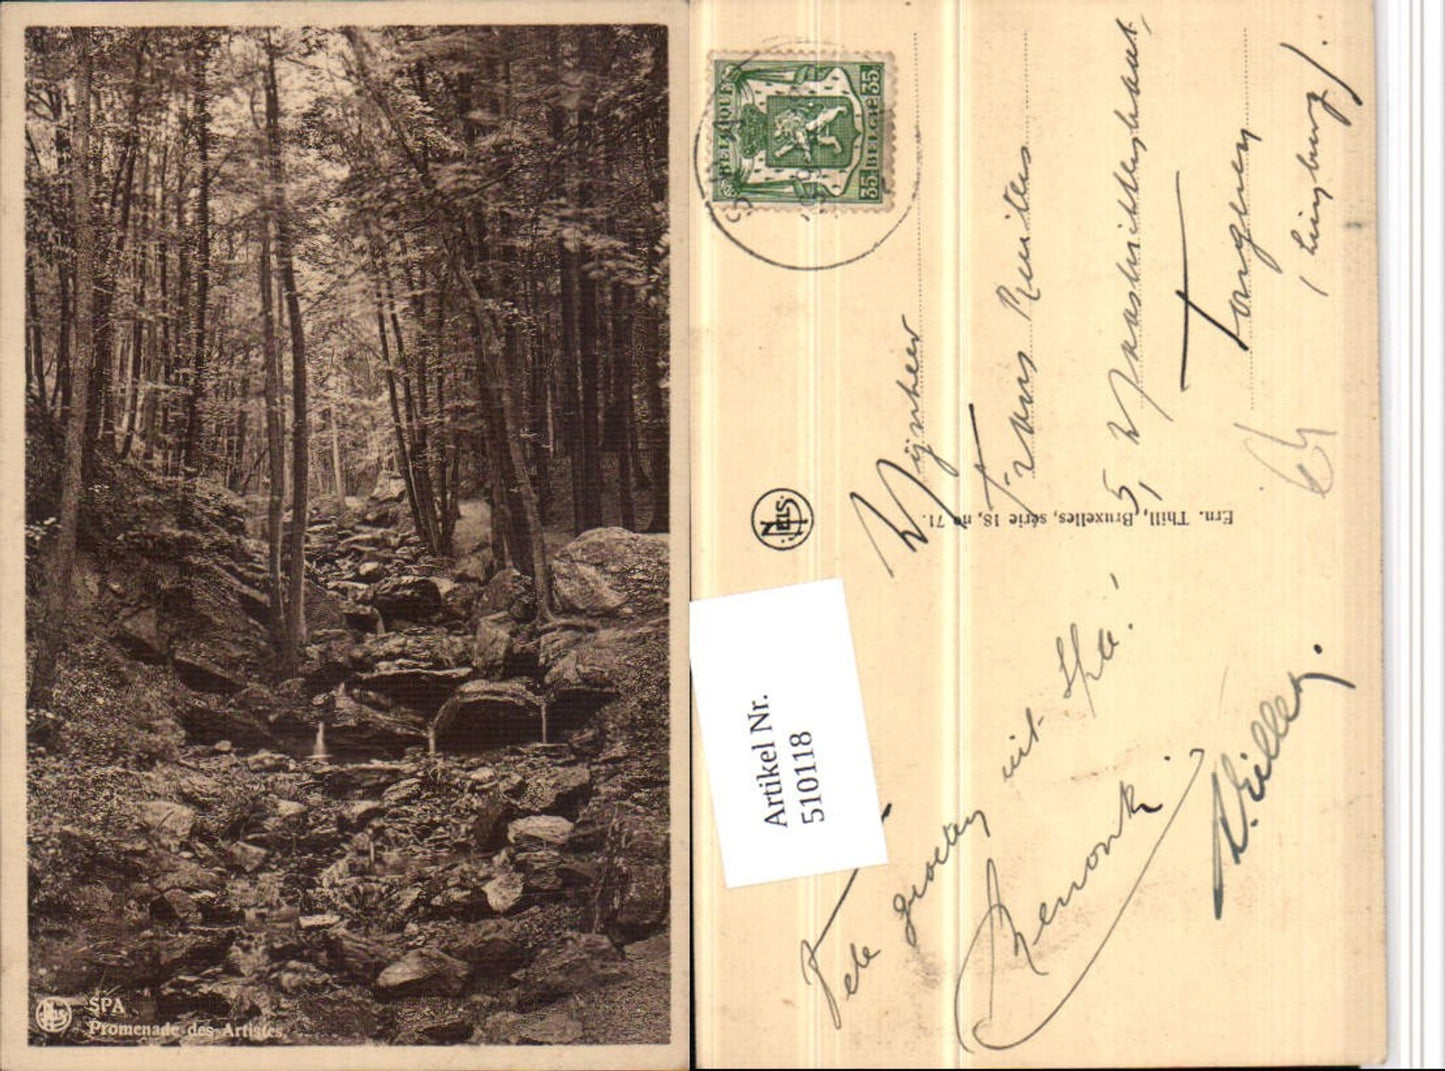 SPA
Promenade des Artistes.
NELS
BELGIQUE
BELGIE
35
35
SPA
Mijnheer
Frans
5, Maastrichterstraat,
Tongeren
(Limburg).
NELS
Ern. Thill, Bruxelles, série 18, no 71.
Artikel Nr.
510118
Vele groeten uit Spa!